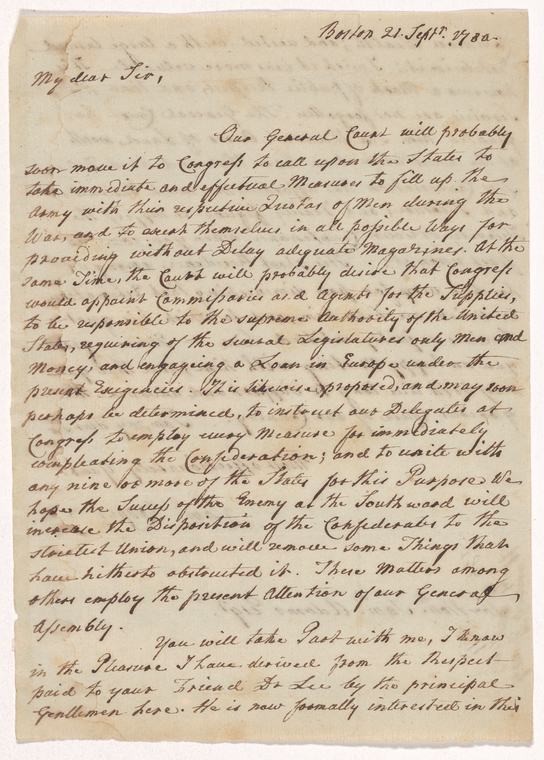 Boston 21. Septr. 1780.
My dear Sir,
Our General Court will probably
soon move it to Congress to call upon the States to
take immediate and effectual Measures to fill up the
Army with their respective Quotas of Men during the
War, and to exert themselves in all possible Ways for
providing without Delay adequate Magazines. At the
same Time, the Court will probably desire that Congress
would appoint Commissaries and Agents for the Supplies,
to be responsible to the supreme Authority of the United
States, requiring of the several Legislatures only Men and
Money; and engageing a Loan in Europe under the
present Exigencies. It is likewise proposed, and may soon
perhaps be determined, to instruct our Delegates at
Congress to employ every Measure for immediately
compleating the Confederation; and to unite with
any nine or more of the States for this Purpose. We
hope the Success of the Enemy at the Southward will
increase the Disposition of the Confederates to the
strictest Union, and will remove some Things that
have hitherto obstructed it. These Matters among
others employ the present Attention of our General
Assembly.
You will take Part with me, I know
in the Pleasure I have derived from the Respect
paid to your Friend Dr Lee by the principal
Gentlemen here. He is now formally interested in this